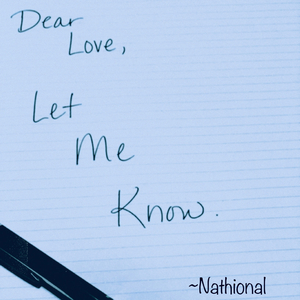 Dear
Love,
Let
Me
Know.
~Nathional